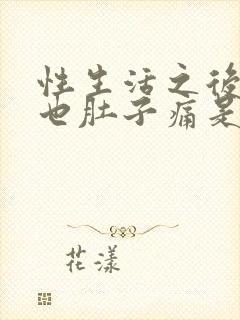 性生活之後
也肚子痛是
花漾